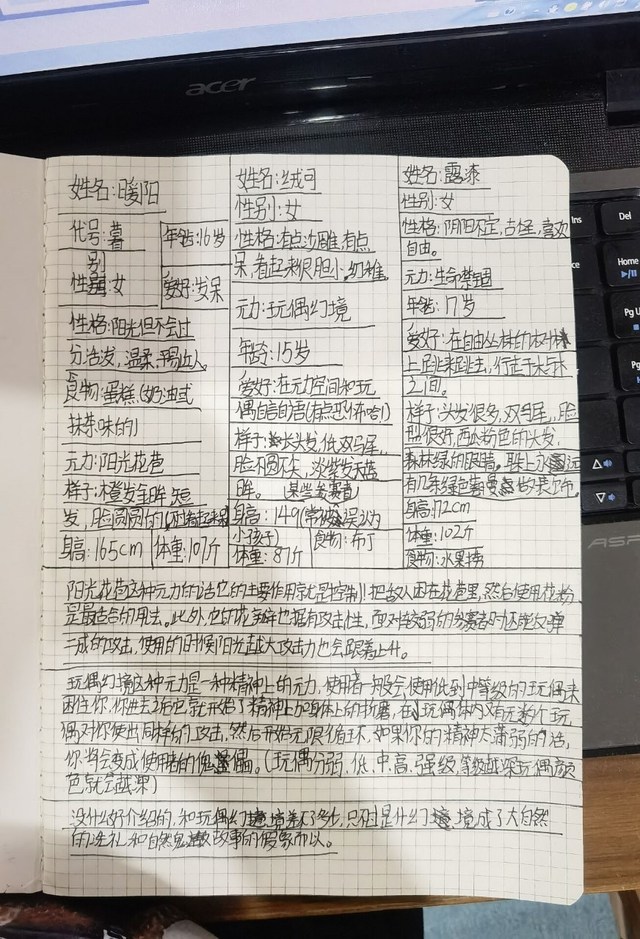 acer
姓名:暖阳
代号:暮
年龄:16岁
别
性 女
爱好:发呆
性格:阳光但不会过
分活发,温柔,平易近人。
食物:蛋糕(奶油或
抹茶味的)
元力:阳光花苞
样子:橙发金眸 短
发,脸圆圆的
身高:165cm
体重:107斤
姓名:绒可
性别:女
性格:有点沙雕,有点
呆,看起来很胆小。幼稚
元力:玩偶幻境
年龄:15岁
爱好:在元力空间和玩
偶自言自语(有点恐怖哈!)
样子: 长头发,低双马尾,
脸不圆不尖,淡紫发天蓝
眸。(某些参赛者
身高:149(常被误以为
小孩子)
体重:87斤
食物:布丁
姓名:露漆
性别:女
性格:阴阳不定,古怪,喜欢
自由。
元力:生命禁锢
年龄:17岁
爱好:在自由丛林的树林
上跳来跳去,行走于大与不
之间。
样子:头发很多,双马尾,脸
型很好,西瓜粉色的头发,
森林绿的眼睛。耳上永远
有几条绿色 做装饰。
身高:172cm
体重:102斤
食物:水果捞
阳光花苞这种元力的话它的主要作用就是控制!!把敌人困在花苞里,然后使用花粉
是最适合的用法。此外,它的花瓣也拥有攻击性,面对较弱的参赛者时还能反弹
三成的攻击,使用的时候阳光越大攻击力也会跟着上升。
玩偶幻境这种元力是一种精神上的元力,使用者一般会使用低到中等级的玩偶来
困住你,你进去之后它就开始了精神上加身体上的折磨,在小玩偶体内又有无数个玩
偶对你使出同样的攻击,然后开始无限循环,如果你的精神太薄弱的话,
你将会变成使用者的傀儡。(玩偶分弱,低,中,高,强级,等级越深玩偶颜
色就会越黑)
没什么好介绍的,和玩偶幻境差不了多少,只不过是什幻 境成了大自然
的洗礼和自然鬼 故事的假象而以。
Ins
Del
Home
Pg U
Pg
ASP